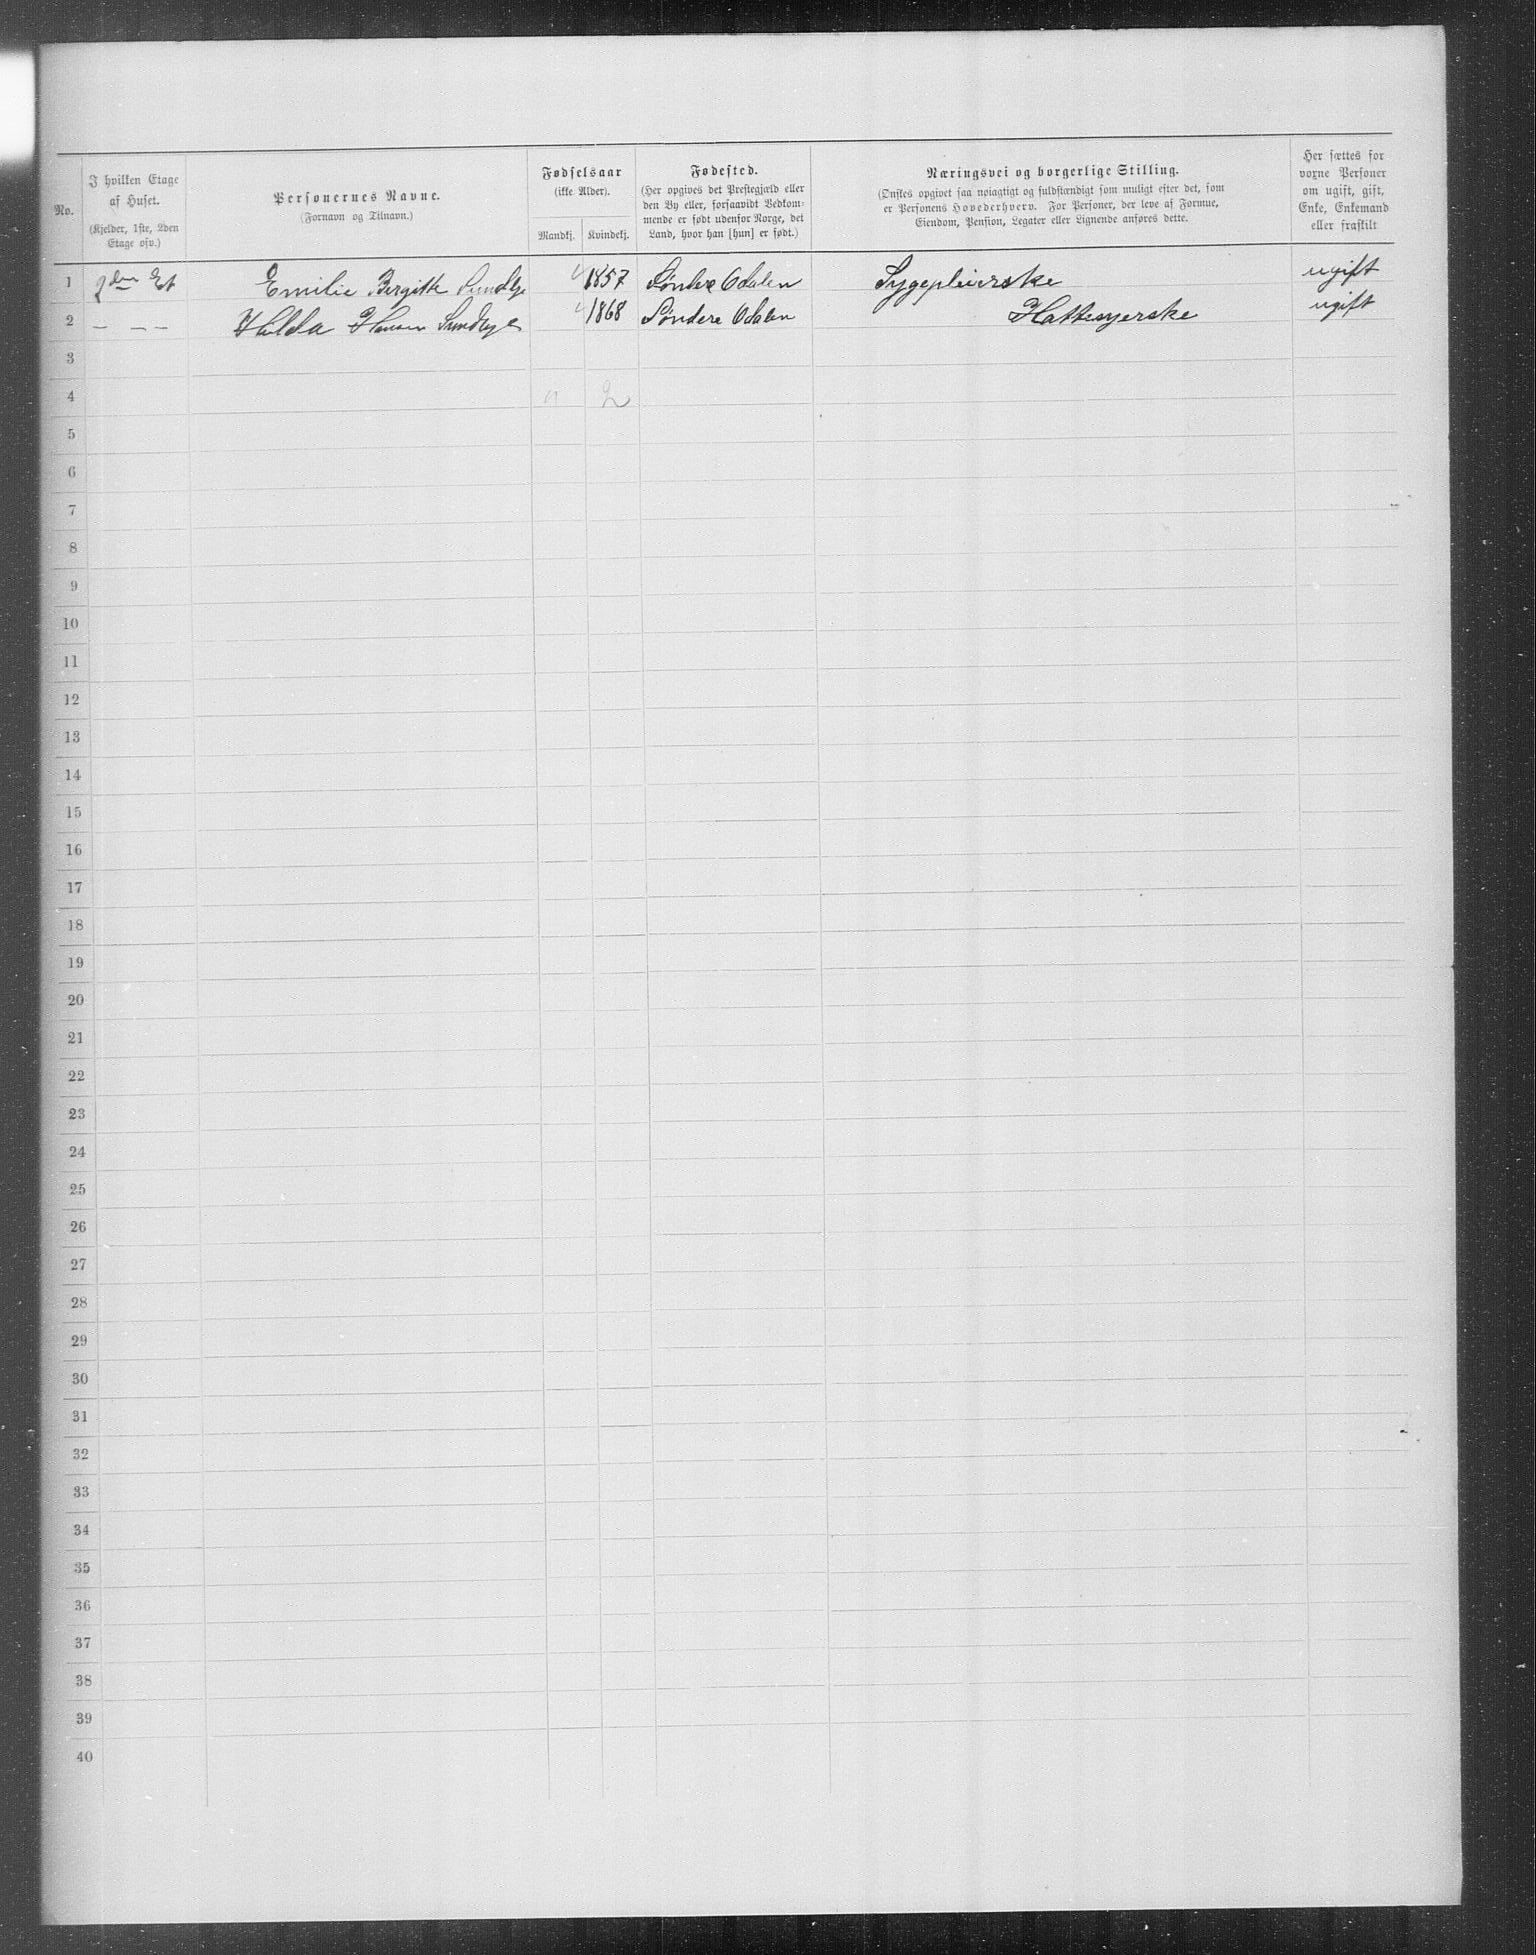 No.
I hvilken Etage
af Huset.
(Kjelder, 1ste, 2den
Etage osv.)
Personernes Navne.
(Fornavn og Tilnavn.)
Fødselsaar
(ikke Alder).
Mandkj. Kvindekj.
Fødested.
(Her opgives det Præstegjæld eller
den By eller, forsaavidt Vedkom-
mende er født udenfor Norge, det
Land, hvor han [hun] er født.)
Næringsvei og borgerlige Stilling.
(Ønskes opgivet saa nøiagtigt og fuldstændigt som muligt efter det, som
er Personens Hovederhverv. For Personer, der leve af Formue,
Eiendom, Pension, Legater eller Lignende anføres dette.
Her sættes for
voxne Personer
om ugift, gift,
Enke, Enkemand
eller fraskilt
1 2den Et Emilie Bergitte Sundbye 1857 Søndre Odalen Sygepleierske ugift
2 — — — Hulda Hansen Sundbye 1868 Søndere Odalen Hattesyerske ugift
3
4 2
5
6
7
8
9
10
11
12
13
14
15
16
17
18
19
20
21
22
23
24
25
26
27
28
29
30
31
32
33
34
35
36
37
38
39
40